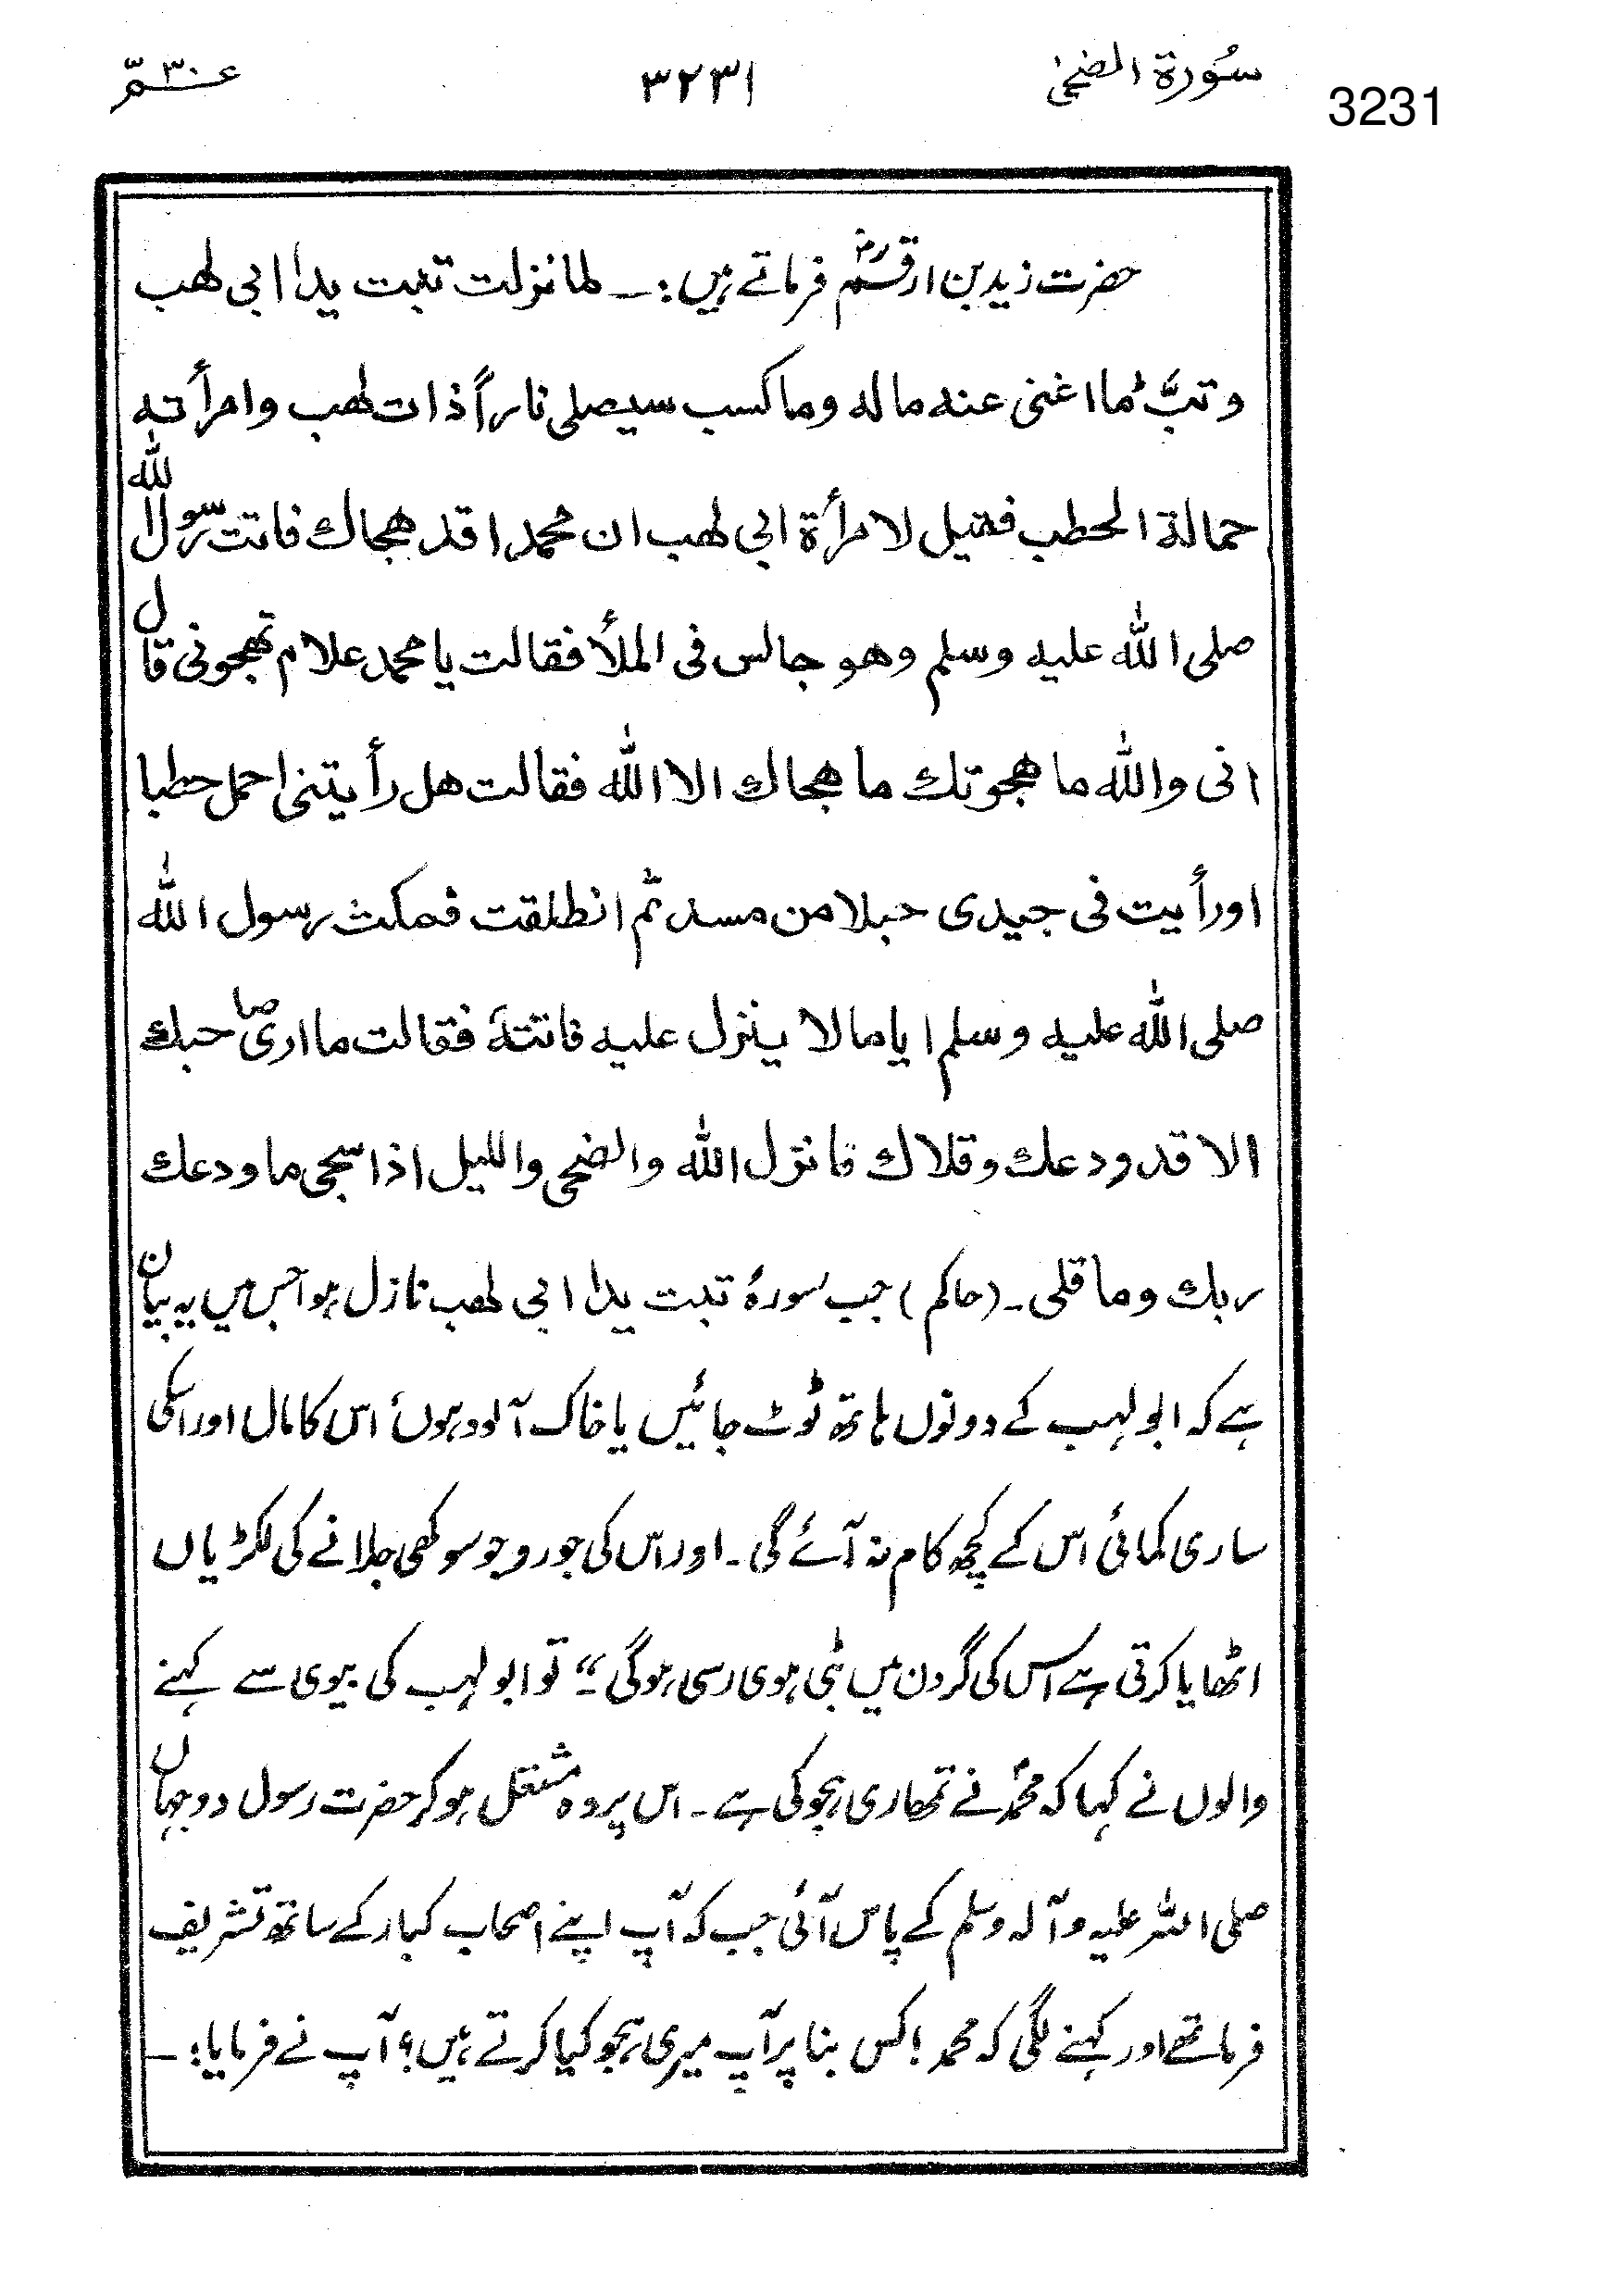 سُورة الضحیٰ ۳۲۳۱ عـــ۳۰ــمّ
3231
حضرت زید بن ارقمؓ فرماتے ہیں :۔ لما نزلت تبت یدا ابی لھب
و تبَّ ما اغنی عنه ماله وما کسب سیصلی ناراً ذات لھب وامرأته
حمالة الحطب فقیل لامرأة ابی لھب ان محمدا قد ھجاك فاتت رسول الله
صلی الله علیه وسلم وھو جالس فی الملأ فقالت یا محمد علام تھجونی قال
انی والله ما ھجوتك ما ھجاك الا الله فقالت ھل رأیتنی احمل حطبا
او رأیت فی جیدی حبلا من مسد ثم انطلقت فمکث رسول الله
صلی الله علیه وسلم ایاما لا ینزل علیه فاتتهٗ فقالت ما اری صاحبك
الا قد ودعك وقلاك فانزل الله والضحی واللیل اذا سجی ما ودعك
ربك وما قلی ۔ (حاکم) جب سورهٔ تبت یدا ابی لھب نازل ہوا جس میں یہ بیان
ہے کہ ابو لہب کے دونوں ہاتھ ٹوٹ جائیں یا خاک آلود ہوں اس کا مال اور اسکی
ساری کمائی اس کے کچھ کام نہ آئے گی ۔ اور اس کی جورو جو سوکھی جلانے کی لکڑیاں
اٹھایا کرتی ہے اس کی گردن میں بٹی ہوی رسی ہوگی ۔" تو ابو لہب کی بیوی سے کہنے
والوں نے کہا کہ محمدؐ نے تمھاری ہجو کی ہے ۔ اس پر وہ مشتعل ہو کر حضرت رسول دو جہاں
صلی اللہ علیہ وآلہ وسلم کے پاس آئی جب کہ آپ اپنے اصحاب کبار کے ساتھ تشریف
فرما تھے اور کہنے لگی کہ محمد ! کس بنا پر آپ میری ہجو کیا کرتے ہیں ؟ آپ نے فرمایا :۔